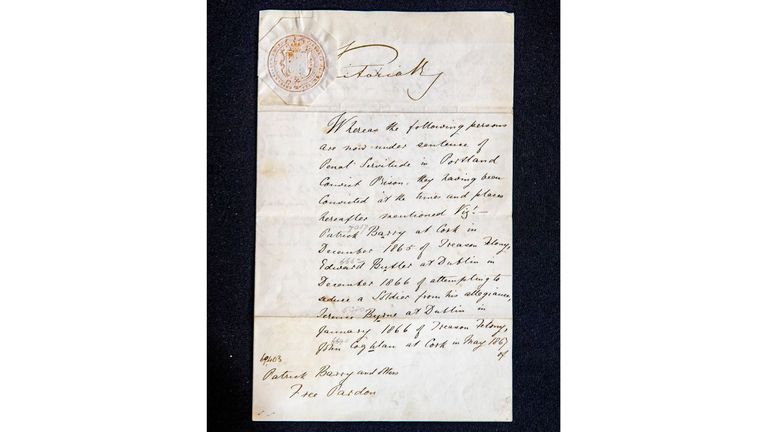 Victoria R
Whereas the following persons
are now under sentence of
Penal Servitude in Portland
Convict Prison, they having been
Convicted at the times and places
hereafter mentioned Viz!—
Patrick Barry at Cork in
December 1865 of Treason Felony,
Edward Butler at Dublin in
December 1866 of attempting to
seduce a Soldier from his allegiance,
Terence Byrne at Dublin in
January 1866 of Treason Felony,
John Coghlan at Cork in May 1867
of
Patrick Barry and others
Free Pardon